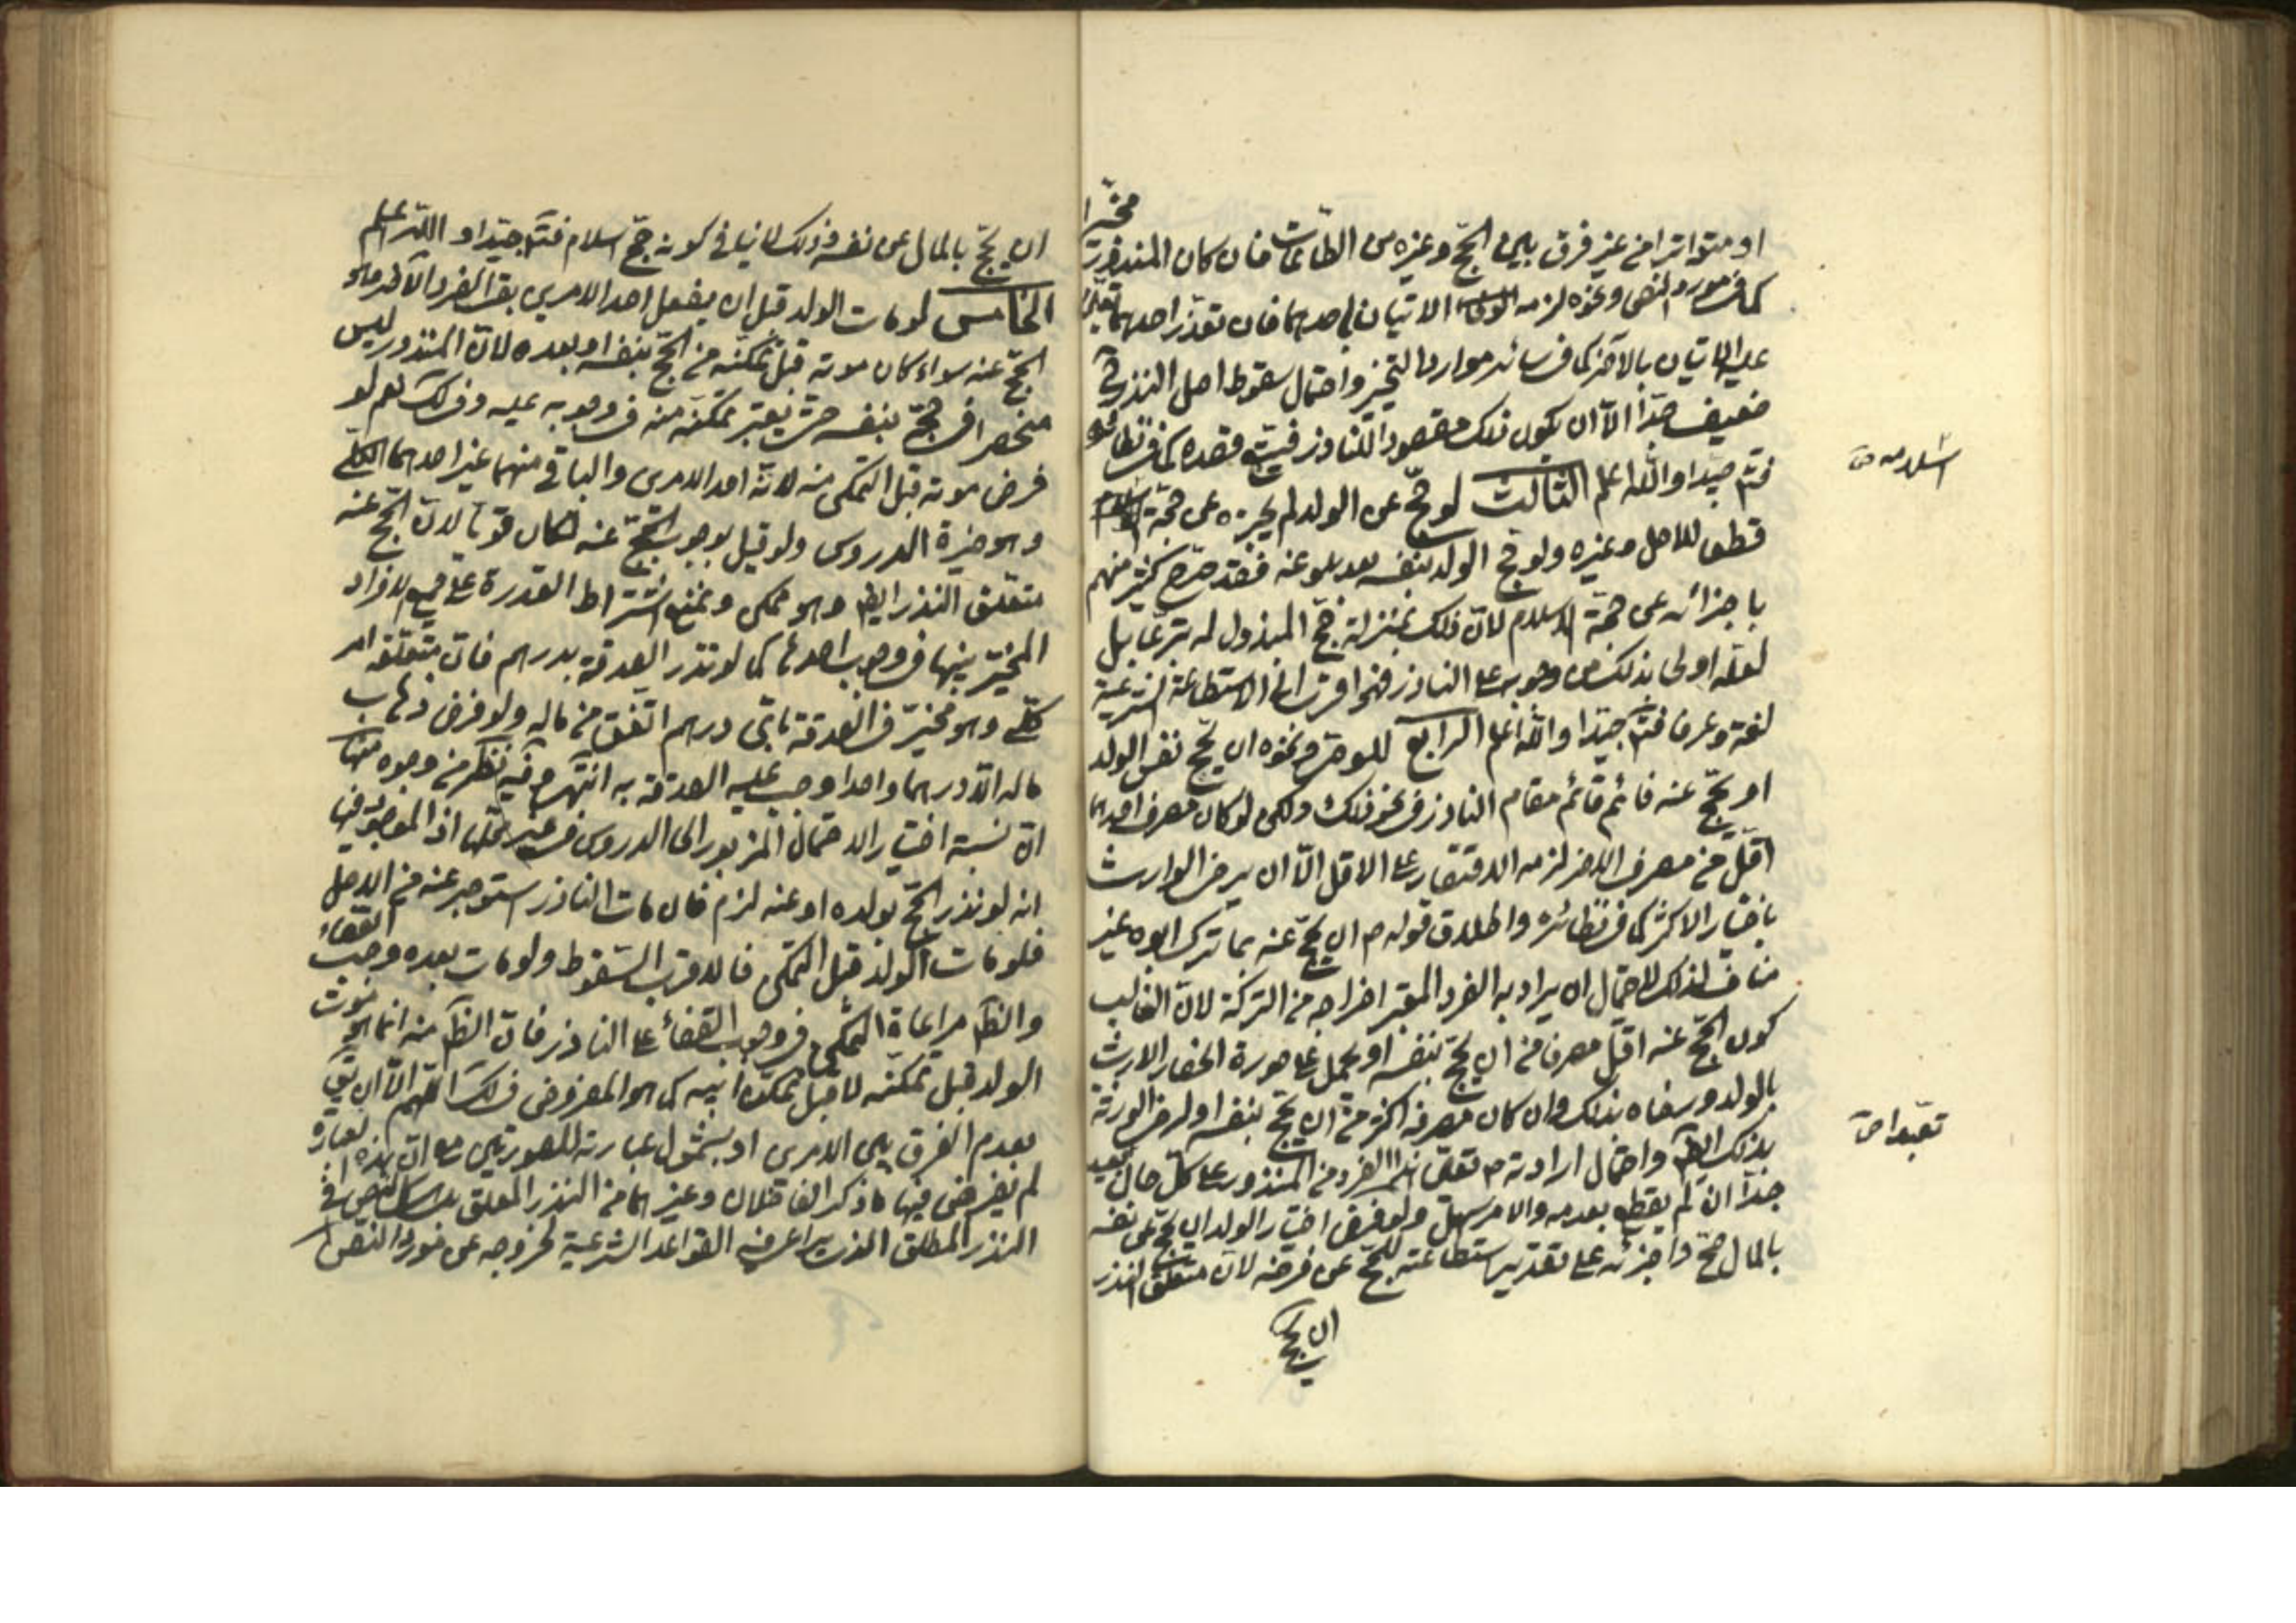 او متواترا من غير فرق بين الحج وغيره من الطاعات فان كان المنذور مخيرا
كما في مورد النص ونحوه لزمه الاتيان باحدهما فان تعذر احدهما تعين
عليه الاتيان بالآخر كما في سائر موارد التخيير واحتمال سقوط اصل النذر ح
ضعيف جدا الا ان يكون ذلك مقصودا للناذر فيتبع قصده كما في نظائره
فتأمل جيدا والله اعلم الثالث لو حج عن الولد لم يجزه عن حجة الاسلام
اسلامه ص
قطعا للاصل وغيره ولو حج الولد بنفسه بعد بلوغه فقد صرح كثير منهم
باجزائه عن حجة الاسلام لان ذلك بمنزلة حج المبذول له شرعا بل
لعله اولى بذلك من وجوبه على الناذر الاستطاعة الشرعية
لغة وعرفا فتأمل جيدا والله اعلم الرابع للوصي ونحوه ان يحج نفس الولد
او يحج عنه فانه قائم مقام الناذر في نحو ذلك ولكن لو كان مصرف احدهما
اقل من مصرف الاخر لزمه الاقتصار على الاقل الا ان يرضى الوارث
باختيار الاكثر كما في نظائره واطلاق قوله ع ان يحج عنه مما ترك ابوه غير
مناف لذلك لاحتمال ان يراد به الفرد المعتبر اخراجه من التركة لان الغالب
كون الحج عنه اقل مصرفا من ان يحج بنفسه او يحمل على صورة انحصار الارث
بالولد ورضاه بذلك وان كان مصرفه اكثر من ان يحج بنفسه او رضى الورثة
بذلك ايضا واحتمال ارادته ع تعلق هذا الفرد من المنذور على كل حال بعيد
تعبدا ص
جدا ان لم يقطع بعدمه والامر سهل ولو فرض اختيار الولد ان يحج عن نفسه
بالمال صح واجزئه على تقدير استطاعته للحج عن فرضه لان متعلق النذر
ان يحج
ان يحج بالمال عن نفسه وذلك لا ينافي كونه حج اسلام فتأمل جيدا والله اعلم
الخامس لو مات الولد قبل ان يفعل احد الامرين بقى الفرد الآخر وهو
الحج عنه سواء كان موته قبل تمكنه من الحج بنفسه او بعده لان المنذور ليس
منحصرا في حجه بنفسه حتى يعتبر تمكنه منه في وجوبه عليه وفي لك نعم لو
فرض موته قبل التمكن منه لانه احد الامرين والباقي منهما غير احدهما الكلي
وهو خيرة الدروس ولو قيل بوجوب الحج عنه لكان قويا لان الحج عنه
متعلق النذر ايضا وهو ممكن ونمنع اشتراط القدرة على جميع الافراد
المخير بينها في وجوب احدها كما لو نذر الصدقة بدرهم فان متعلقه امر
كلي وهو مخير في الصدقة باي درهم اتفق من ماله ولو فرض ذهاب
ماله الا درهما واحدا وجب عليه الصدقة به انتهى وفيه نظر من وجوه منها
ان نسبة اختيار الاحتمال المزبور الى الدروس في غير محلها اذ الموجود فيها
انه لو نذر الحج بولده او عنه لزم فان مات الناذر استوجر عنه من الاصل
فلو مات الولد قبل التمكن فالاقرب السقوط ولو مات بعده وجب القضاء
والظ مراعاة التمكن في وجوب القضاء على الناذر فان الظ منه انما هو موت
الولد قبل تمكنه لا قبل تمكن ابيه كما هو المفروض في لك اللهم الا ان يق
بعدم الفرق بين الامرين او بشمول عبارته للصورتين مع ان هذه العبارة
لم يفرض فيها ما ذكر الفاضلان وغيرهما من النذر المعلق بل
النذر المطلق الذي يراعى فيه القواعد الشرعية لخروجه عن مورد النص